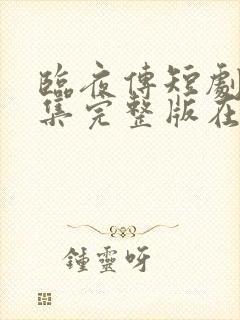 臨夜傳短劇
集完整版在
鍾靈呀